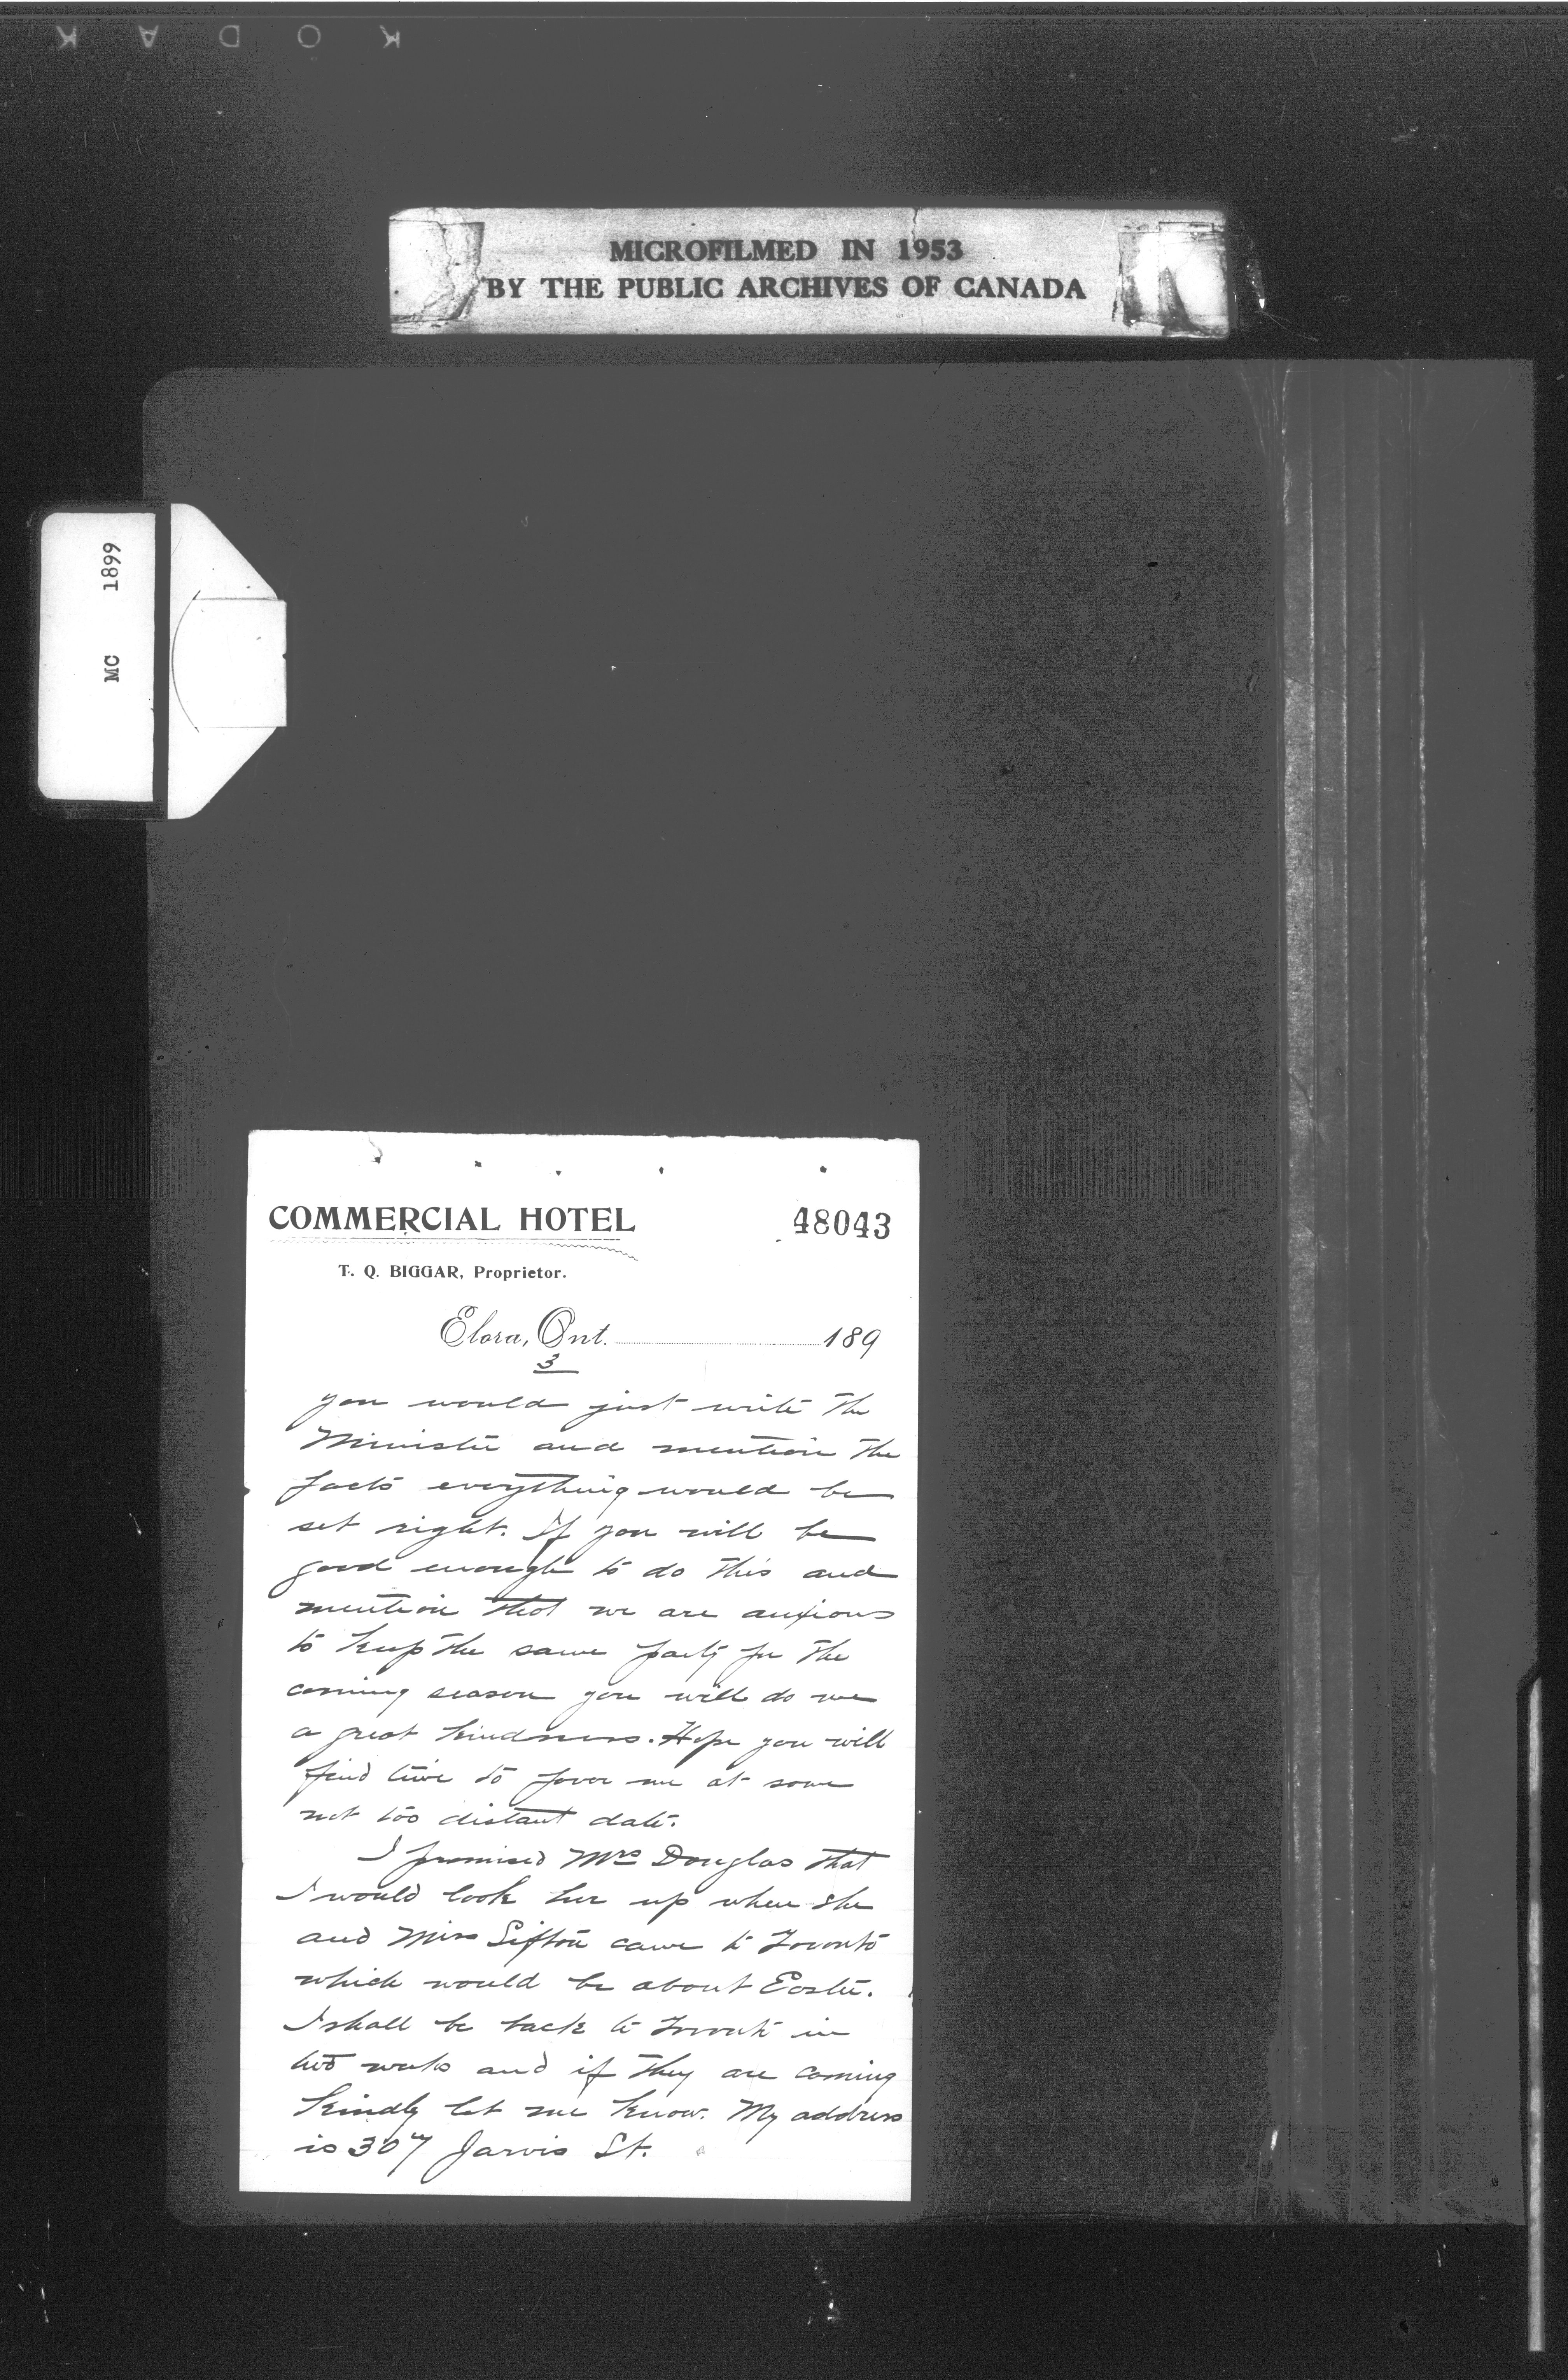 KODAK
MICROFILMED IN 1953
BY THE PUBLIC ARCHIVES OF CANADA
MC 1899
COMMERCIAL HOTEL
48043
T. Q. BIGGAR, Proprietor.
Elora, Ont. 189
3
you would just write the
Minister and mention the
facts everything would be
set right. If you will be
good enough to do this and
mention that we are anxious
to keep the same party for the
coming season you will do me
a great kindness. Hope you will
find time to favor me at some
not too distant date.
I promised Mrs Douglas that
I would look her up when she
and Miss Sifton came to Toronto
which would be about Easter.
I shall be back to Toronto in
two weeks and if they are coming
kindly let me know. My address
is 307 Jarvis St.